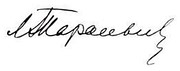 Л Тарасевич